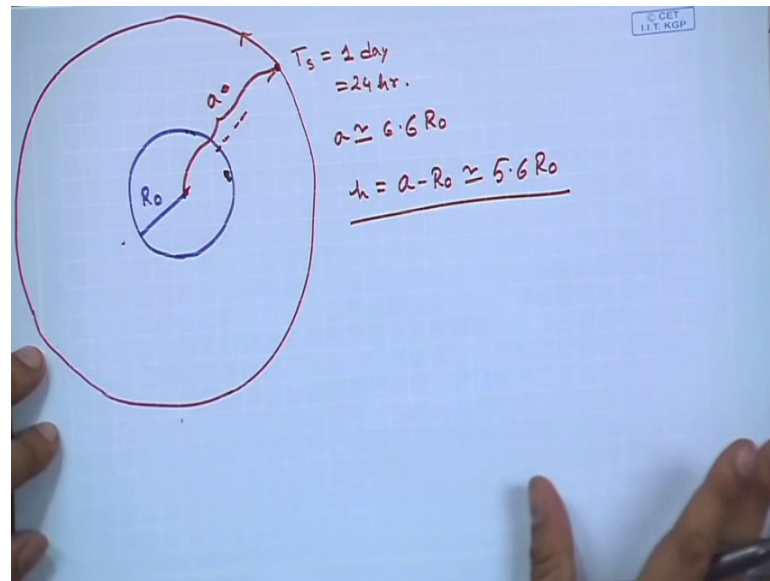 © CET
I.I.T. KGP
Ts = 1 day
= 24 hr.
a
a ≃ 6.6 Ro
Ro
h = a - Ro ≃ 5.6 Ro